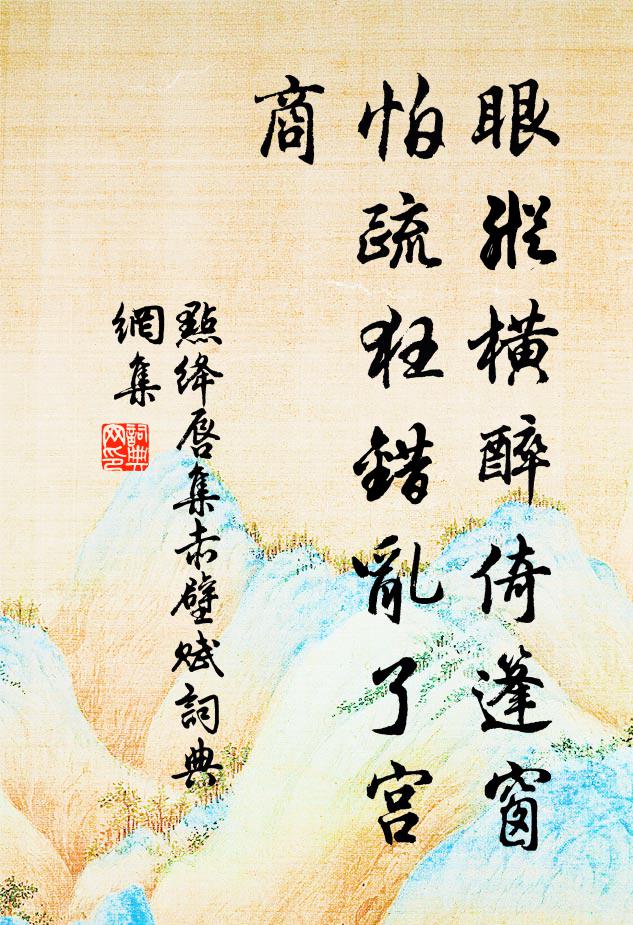 眼縱橫醉倚蓬窗
怕疏狂錯亂了宮
商
點絳唇集赤壁賦詞典
網集
詞典
网印